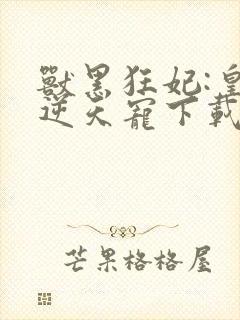 獸黑狂妃:皇
逆天寵下載
芒果格格屋